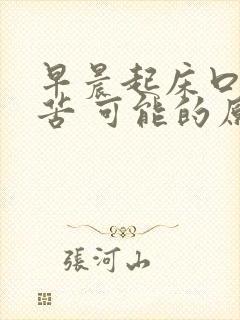 早晨起床口
苦可能的原
張河山